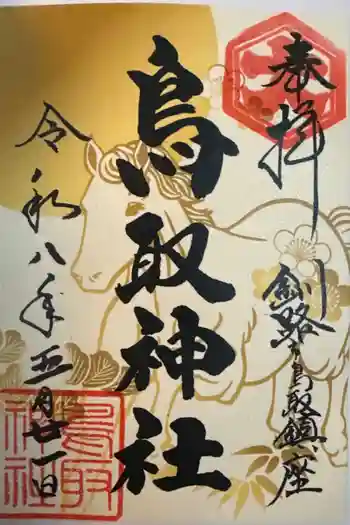 奉拝
釧路ヶ鳥取鎮座
鳥取神社
令和八年五月廿一日
鳥取神社